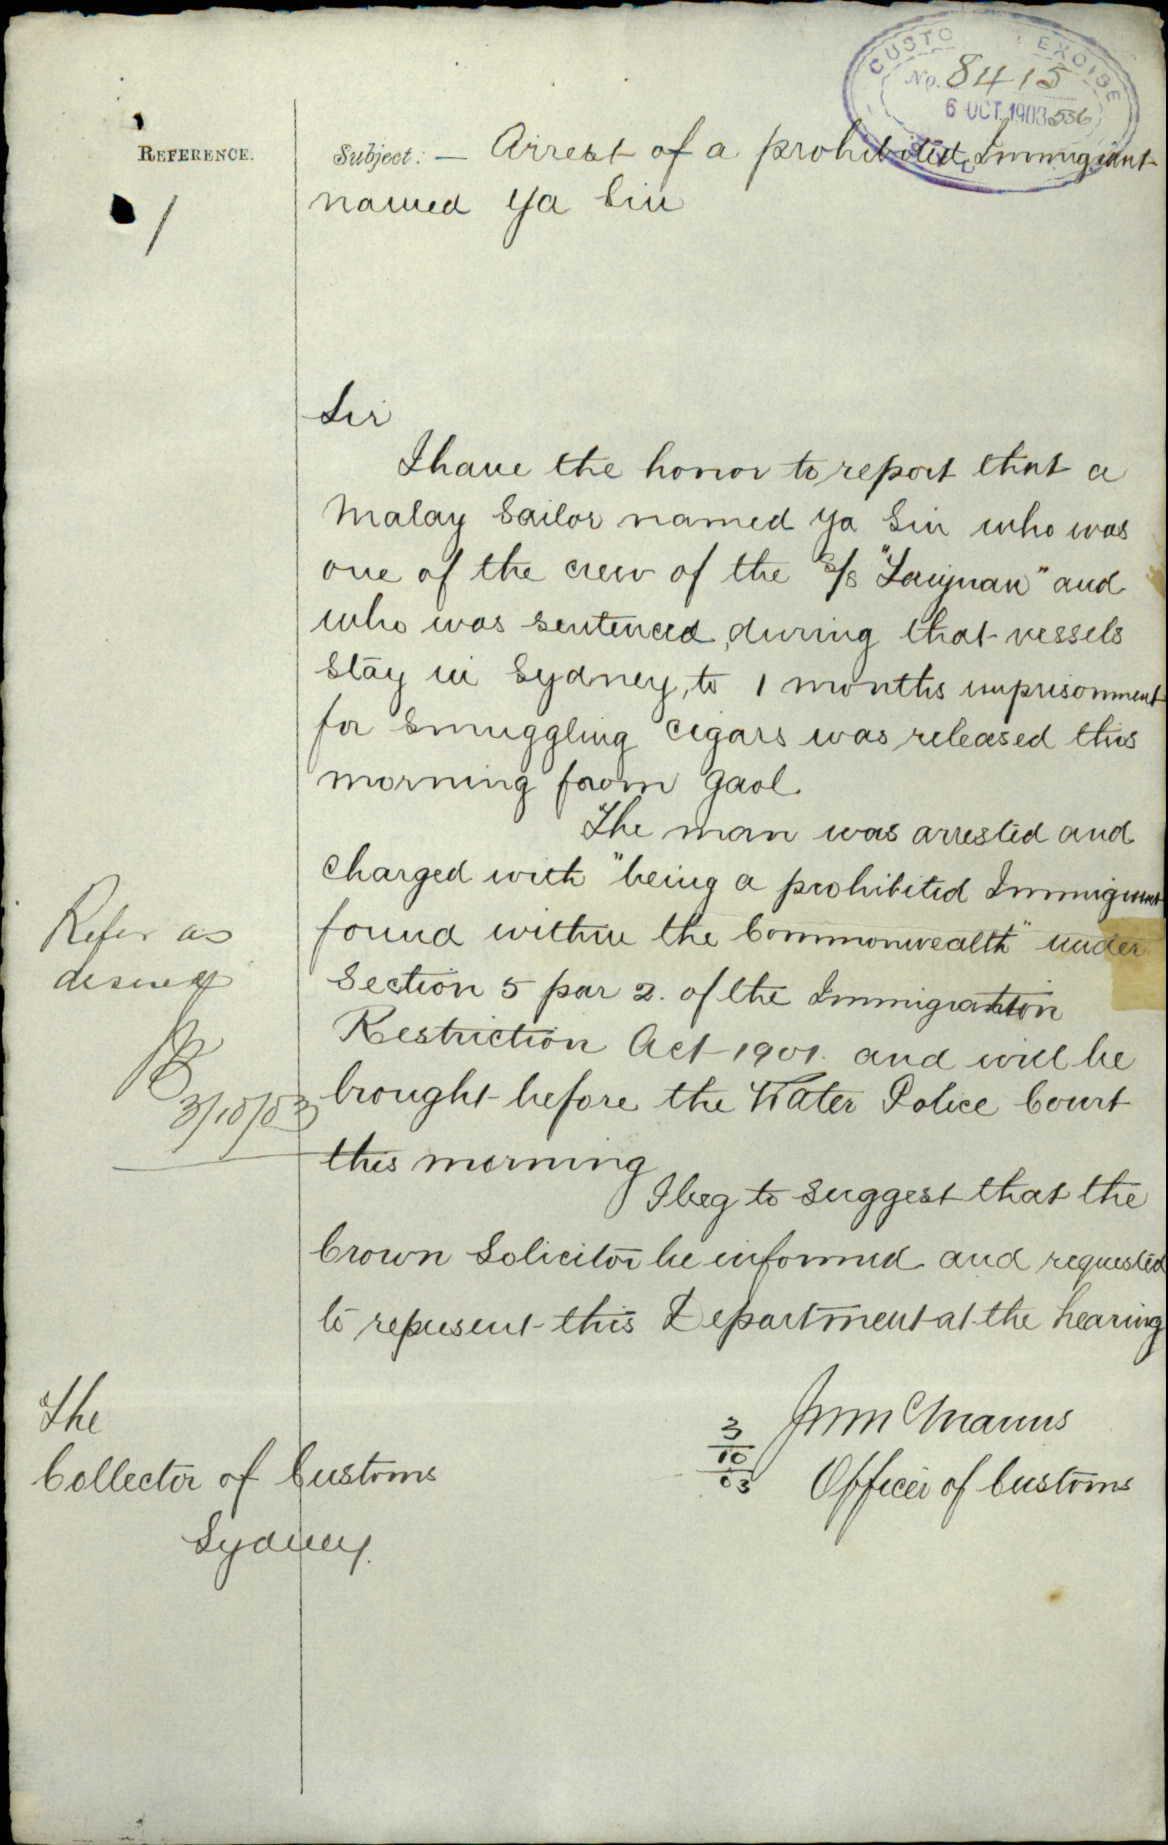 CUSTO EXCISE
No. 8415
6 OCT. 1903 556
REFERENCE.
1
Subject: — Arrest of a prohibited Immigrant
named Ya Sin
Sir
I have the honor to report that a
Malay Sailor named Ya Sin who was
one of the crew of the S/S "Taiyuan" and
who was sentenced, during that vessels
stay in Sydney, to 1 months imprisonment
for smuggling cigars was released this
morning from gaol.
The man was arrested and
charged with "being a prohibited Immigrant
found within the Commonwealth" under
Section 5 par 2. of the Immigration
Restriction Act 1901. and will be
brought before the Water Police Court
this morning
I beg to suggest that the
Crown Solicitor be informed and requested
to represent this Department at the hearing
Refer as
desired
3/10/03
3/10/03
Officer of Customs
The
Collector of Customs
Sydney.